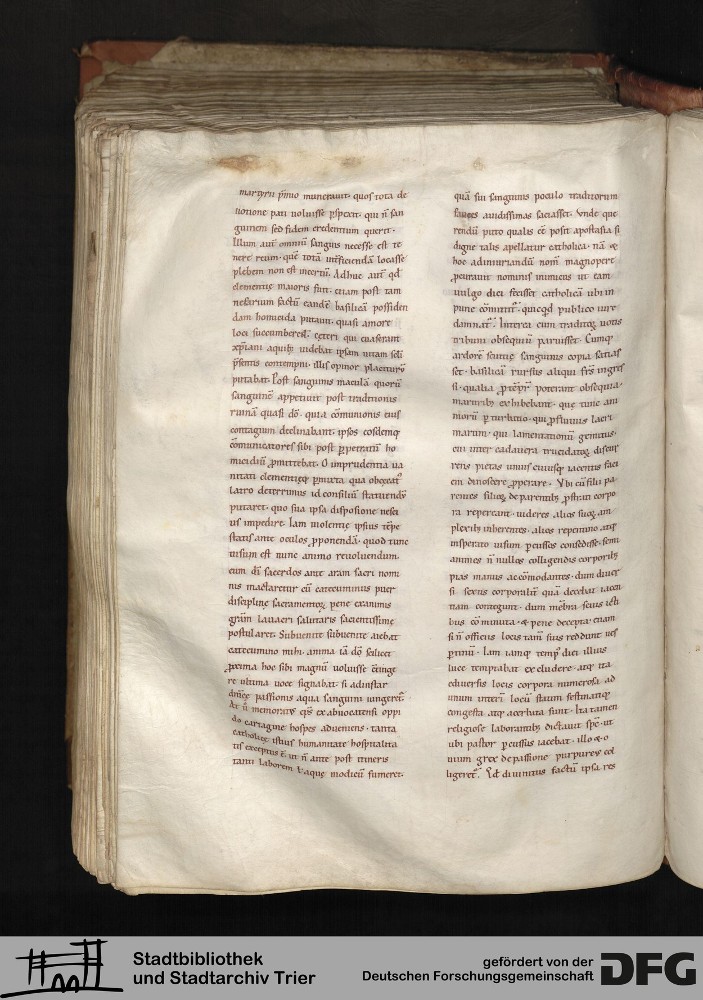 martyrii p̄mio munerauit· quos tota de
uotione pati uoluisse ꝑspexit· qui n̄ san
guinem sed fidem credentium querit·
Illum aut̄ omniū sanguis necesse est te
nere reum· quē totā int̄ficiendā locasse
plebem non est incertū· Adhuc aut̄ qd̄
dementię maioris fuit· etiam post tam
nefarium factū eandē basilicā possiden
dam homicida putauit· quasi amore
loci succumberent exteri qui euaserant
xp̄iani aquib; uidebat ipsam uitam sc̄li
p̄sentis contempni· illis opinor placiturū
putabat· Post sanguinis maculā quorū
sanguinē appetiuit post traditionis
ruinā quasi dō· quia cōmunionis eius
contagium declinabant· ipsos eosdemq;
cōmunicatores sibi post ꝑpetratū ho
micidiū ꝓmittebat· O imprudentia ua
nitati dementięq; ꝑmixta qua obcęcat᷒
latro deterrimus id consiliū statuendū
putaret· quo sua ipsa dispositione nesci
us impediret· Iam uiolentię ipsius tēpe
statis ante oculos ꝓponendā· quod tunc
uisum est nunc animo reuoluendum·
cum dī sacerdos ante aram sacri nomi
nis mactaretur cū catecuminus puer
disciplinę sacramentorū pene exanimis
grām lauacri salutaris sacientissime
postularet· Subuenite subuenite aiebat
catecumino mihi· anima iā dō scilicet
ꝓxima hoc sibi magnū uoluisse cōtinge
re ultima uoce signabat· si adinstar
dn̄icę passionis aqua sanguini iungeret᷒·
At ū memoratꝰ ep̄s ex abuocatensi oppi
do cartagine hospes adueniens· tanta
catholicę istius humanitate hospitalita
tis exceptus ē· ut n̄ ante post itineris
tanti laborem t̄ aquę modicū sumeret·
quā sui sanguinis poculo traditorum
fauces auidissimas saciasset· Vnde que
rendū puto qualis eē posit apostasia si
digne talis apellatur catholica· nā &
hoc adiniuriandū nom̄ magnopere
ꝓcurauit nominis inimicus ut eam
uulgo dici fecisset catholicā ubi in
pune cōmittit᷒· quicqd̄ publico iure
damnat᷒· Interea cum traditorū uotis
tribuni obsequiū paruisset· Cumq;
ardorē scitie sanguinis copia satias
set· basilicā rursus aliqui frs̄ ingres
si· qualia ꝓ tēpr̄ poterant obsequia·
martirib; exhibebant· que tunc am
morū ꝑturbatio· qui ꝓfluuius lacri
marum· qui lamentationū gemitus·
cū inter cadauera trucidatorū discur
rens pietas unius cuiusq; iacentis faci
em dinoscere ꝓperare· Vbi cū filii pa
rentes filiosq; de parentib; ꝓstrati corpo
ra repereant· uideres alios suorū am
plexib; inherentes· alios repentino atq;
insperato uisum ꝑcussos consedisse· semi
animes n̄ nullos colligendis corporib;
pias manus accōmodantes· dum diuer
si sexus corporalit̄ quā decebat iacen
tiam contegunt· dum mēbra seuis icti
bus cōminuta· & pene decepta· etiam
si n̄ officiis locis tam̄ suis reddunt ues
ꝑtinū· Iam iamq; temp᷒ diei illius
luce temptabat excludere· atq; ita
ediuersis locis corpora numerosa ad
unum interī locū statim festinatiq;
congesta atq; aceruata sunt· Ita tamen
religiose laborantib; dictauit spēs· ut
ubi pastor ꝑcussus iacebat· illo & o
uium grex de passione purpureꝰ col
ligeret᷒· Qd̄ diuinitus factū ipsa res
Stadtbibliothek
und Stadtarchiv Trier
gefördert von der
Deutschen Forschungsgemeinschaft
DFG